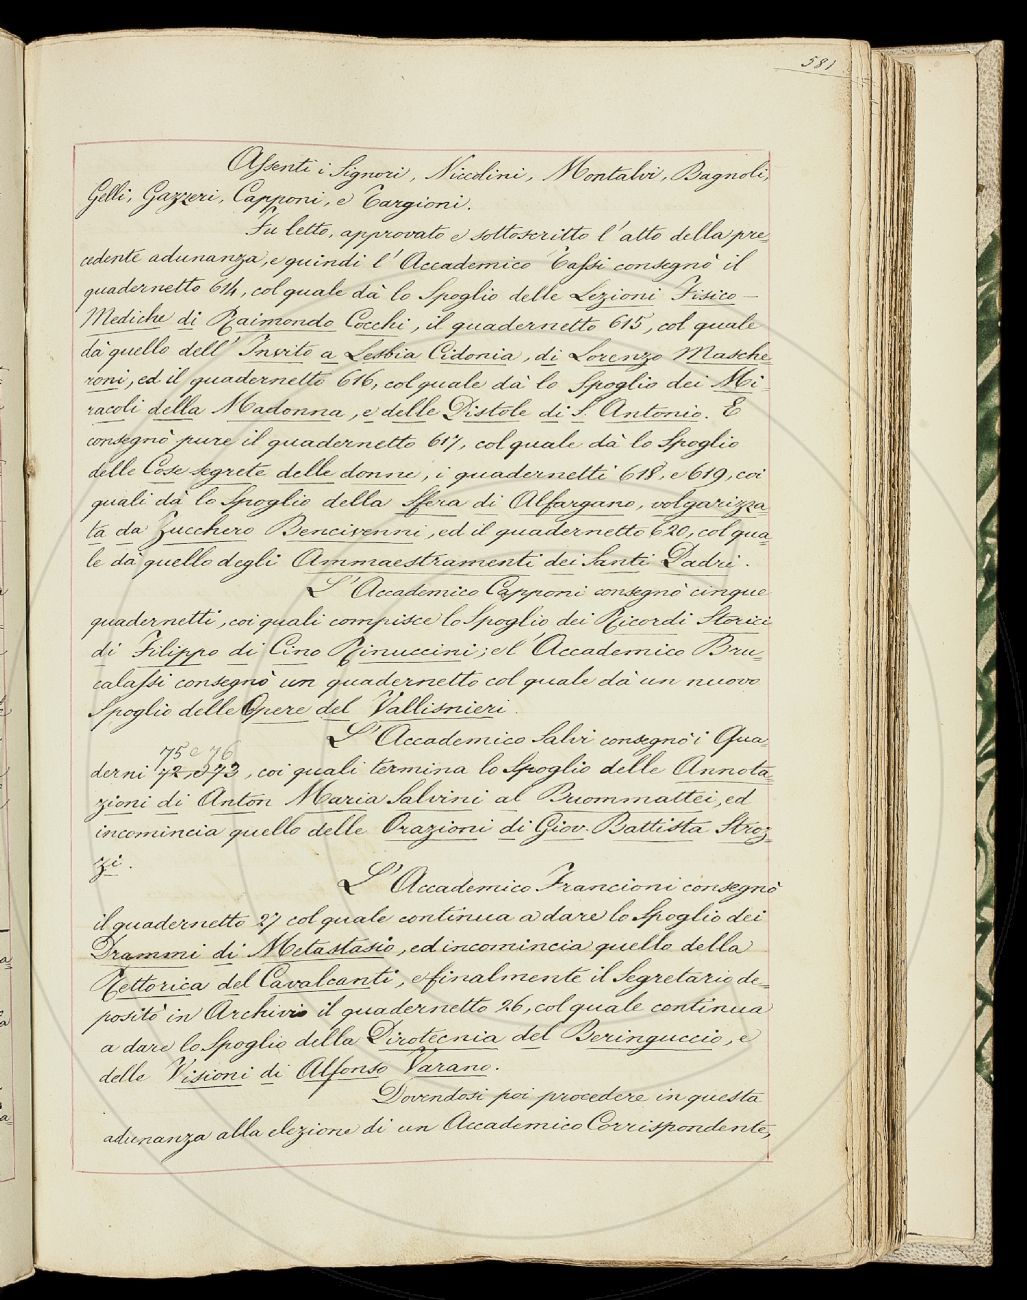 581
Assenti i Signori, Niccolini, Montalvi, Bagnoli,
Gelli, Gazzeri, Capponi, e Targioni.
Fu letto, approvato e sottoscritto l'atto della pre-
cedente adunanza, e quindi l'Accademico Tassi consegnò il
quadernetto 614, col quale dà lo Spoglio delle Lezioni Fisico-
Mediche di Raimondo Cocchi, il quadernetto 615, col quale
dà quello dell'Invito a Lesbia Cidonia, di Lorenzo Masche-
roni, ed il quadernetto 616, col quale dà lo Spoglio dei Mi-
racoli della Madonna, e delle Pistole di S. Antonio. E
consegnò pure il quadernetto 617, col quale dà lo Spoglio
delle Cose segrete delle donne, i quadernetti 618, e 619, coi
quali dà lo Spoglio della Sfera di Alfargano, volgarizza-
ta da Zucchero Bencivenni, ed il quadernetto 620, col qua-
le dà quello degli Ammaestramenti dei Santi Padri.
L'Accademico Capponi consegnò cinque
quadernetti, coi quali compisce lo Spoglio dei Ricordi Storici
di Filippo di Cino Rinuccini; e l'Accademico Bru-
calassi consegnò un quadernetto col quale dà un nuovo
Spoglio delle Opere del Vallisnieri.
L'Accademico Salvi consegnò i Qua-
75 e 76
derni 72, e 73, coi quali termina lo Spoglio delle Annota-
zioni di Anton Maria Salvini al Buommattei, ed
incomincia quello delle Orazioni di Giov. Battista Stroz-
zi.
L'Accademico Francioni consegnò
il quadernetto 27 col quale continua a dare lo Spoglio dei
Drammi di Metastasio, ed incomincia quello della
Rettorica del Cavalcanti, e finalmente il Segretario de-
positò in Archivio il quadernetto 26, col quale continua
a dare lo Spoglio della Pirotecnia del Beringuccio, e
delle Visioni di Alfonso Varano.
Dovendosi poi procedere in questa
adunanza alla elezione di un Accademico Corrispondente,